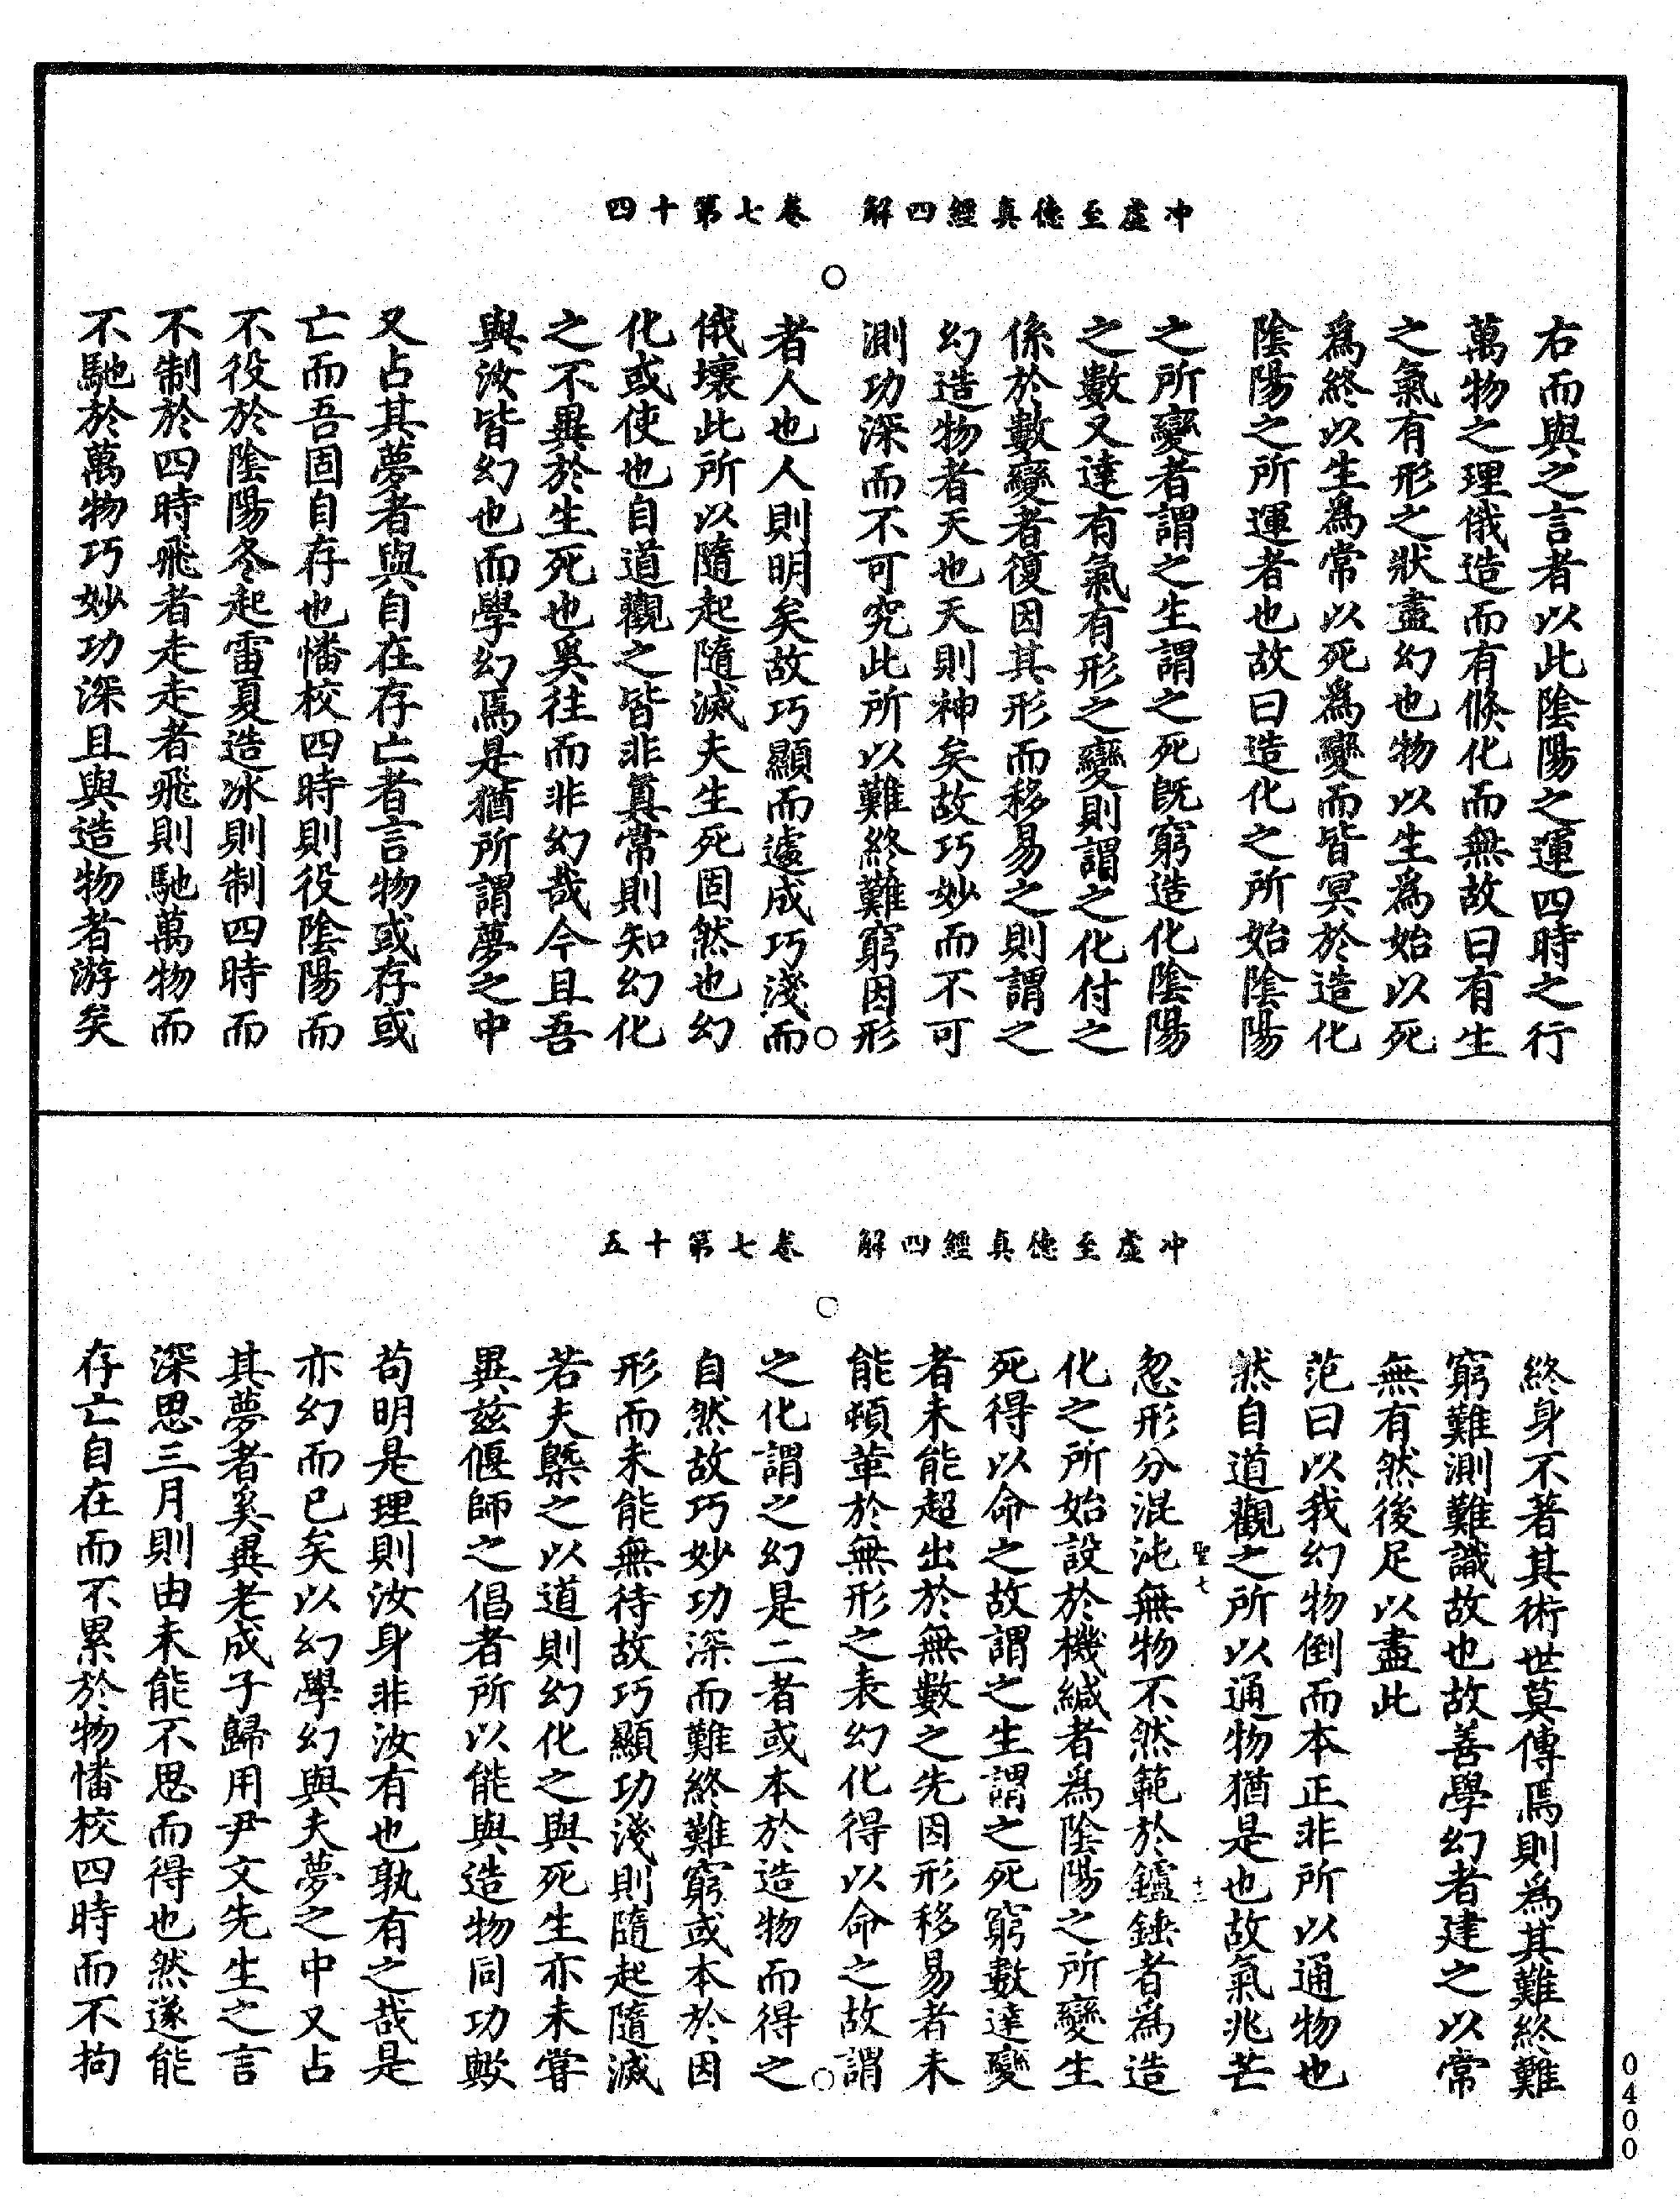 冲虛至德真經四解　卷七第十四
右而與之言者以此陰陽之運四時之行
萬物之理俄造而有倏化而無故曰有生
之氣有形之狀盡幻也物以生為始以死
為終以生為常以死為變而皆冥於造化
陰陽之所運者也故曰造化之所始陰陽
之所變者謂之生謂之死既窮造化陰陽
之數又達有氣有形之變則謂之化付之
係於數變者復因其形而移易之則謂之
幻造物者天也天則神矣故巧妙而不可
測功深而不可究此所以難終難窮因形
者人也人則明矣故巧顯而遽成巧淺而
俄壞此所以隨起隨滅夫生死固然也幻
化或使也自道觀之皆非真常則知幻化
之不異於生死也奚往而非幻哉今且吾
與汝皆幻也而學幻焉是猶所謂夢之中
又占其夢者與自在存亡者言物或存或
亡而吾固自存也憣校四時則役陰陽而
不役於陰陽冬起雷夏造冰則制四時而
不制於四時飛者走走者飛則馳萬物而
不馳於萬物巧妙功深且與造物者游矣
冲虛至德真經四解　卷七第十五
終身不著其術世莫傳焉則為其難終難
窮難測難識故也故善學幻者建之以常
無有然後足以盡此
范曰以我幻物倒而本正非所以通物也
然自道觀之所以通物猶是也故氣兆芒
聖七　十三
忽形分混沌無物不然範於鑪錘者為造
化之所始設於機緘者為陰陽之所變生
死得以命之故謂之生謂之死窮數達變
者未能超出於無數之先因形移易者未
能頓革於無形之表幻化得以命之故謂
之化謂之幻是二者或本於造物而得之
自然故巧妙功深而難終難窮或本於因
形而未能無待故巧顯功淺則隨起隨滅
若夫槩之以道則幻化之與死生亦未嘗
異茲偃師之倡者所以能與造物同功歟
苟明是理則汝身非汝有也孰有之哉是
亦幻而已矣以幻學幻與夫夢之中又占
其夢者奚異老成子歸用尹文先生之言
深思三月則由未能不思而得也然遂能
存亡自在而不累於物憣校四時而不拘
0400